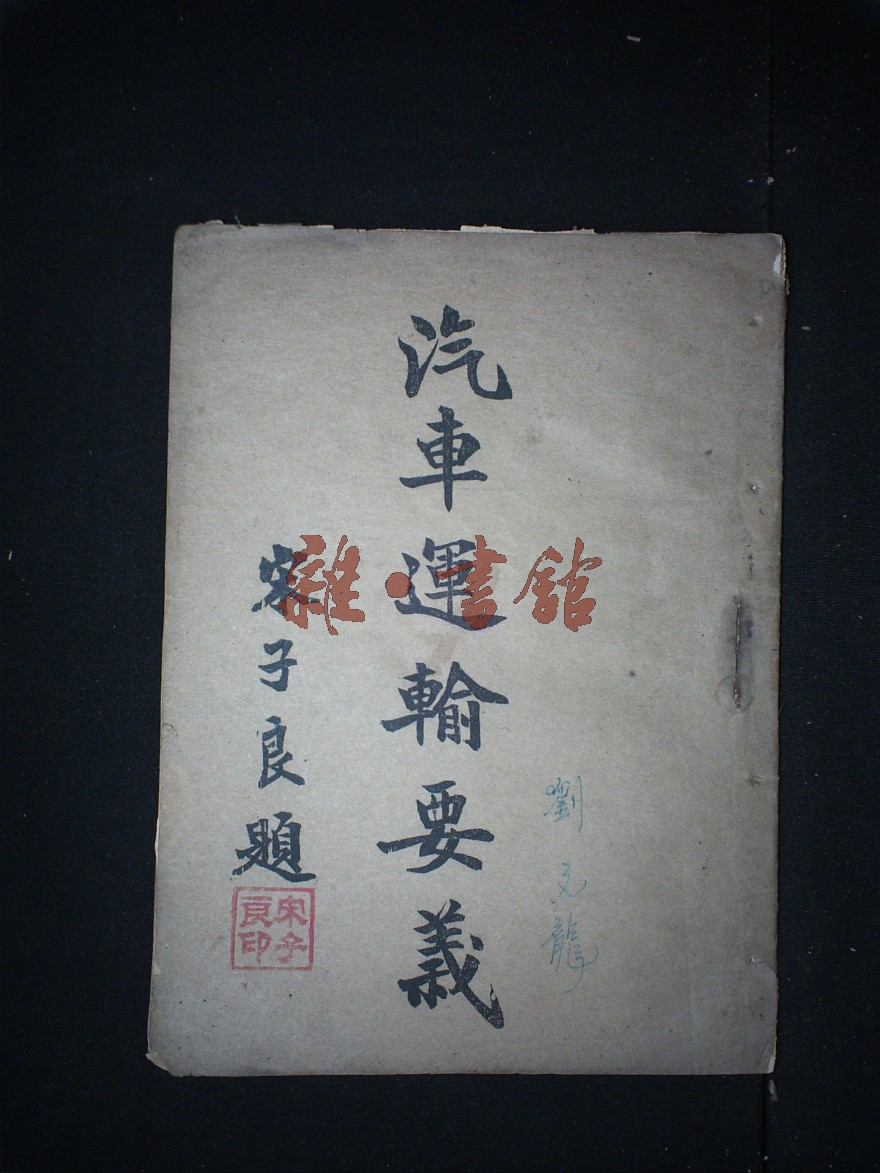 劉文龍
汽車運輸要義
宋子良題
宋子良印
雜·書館